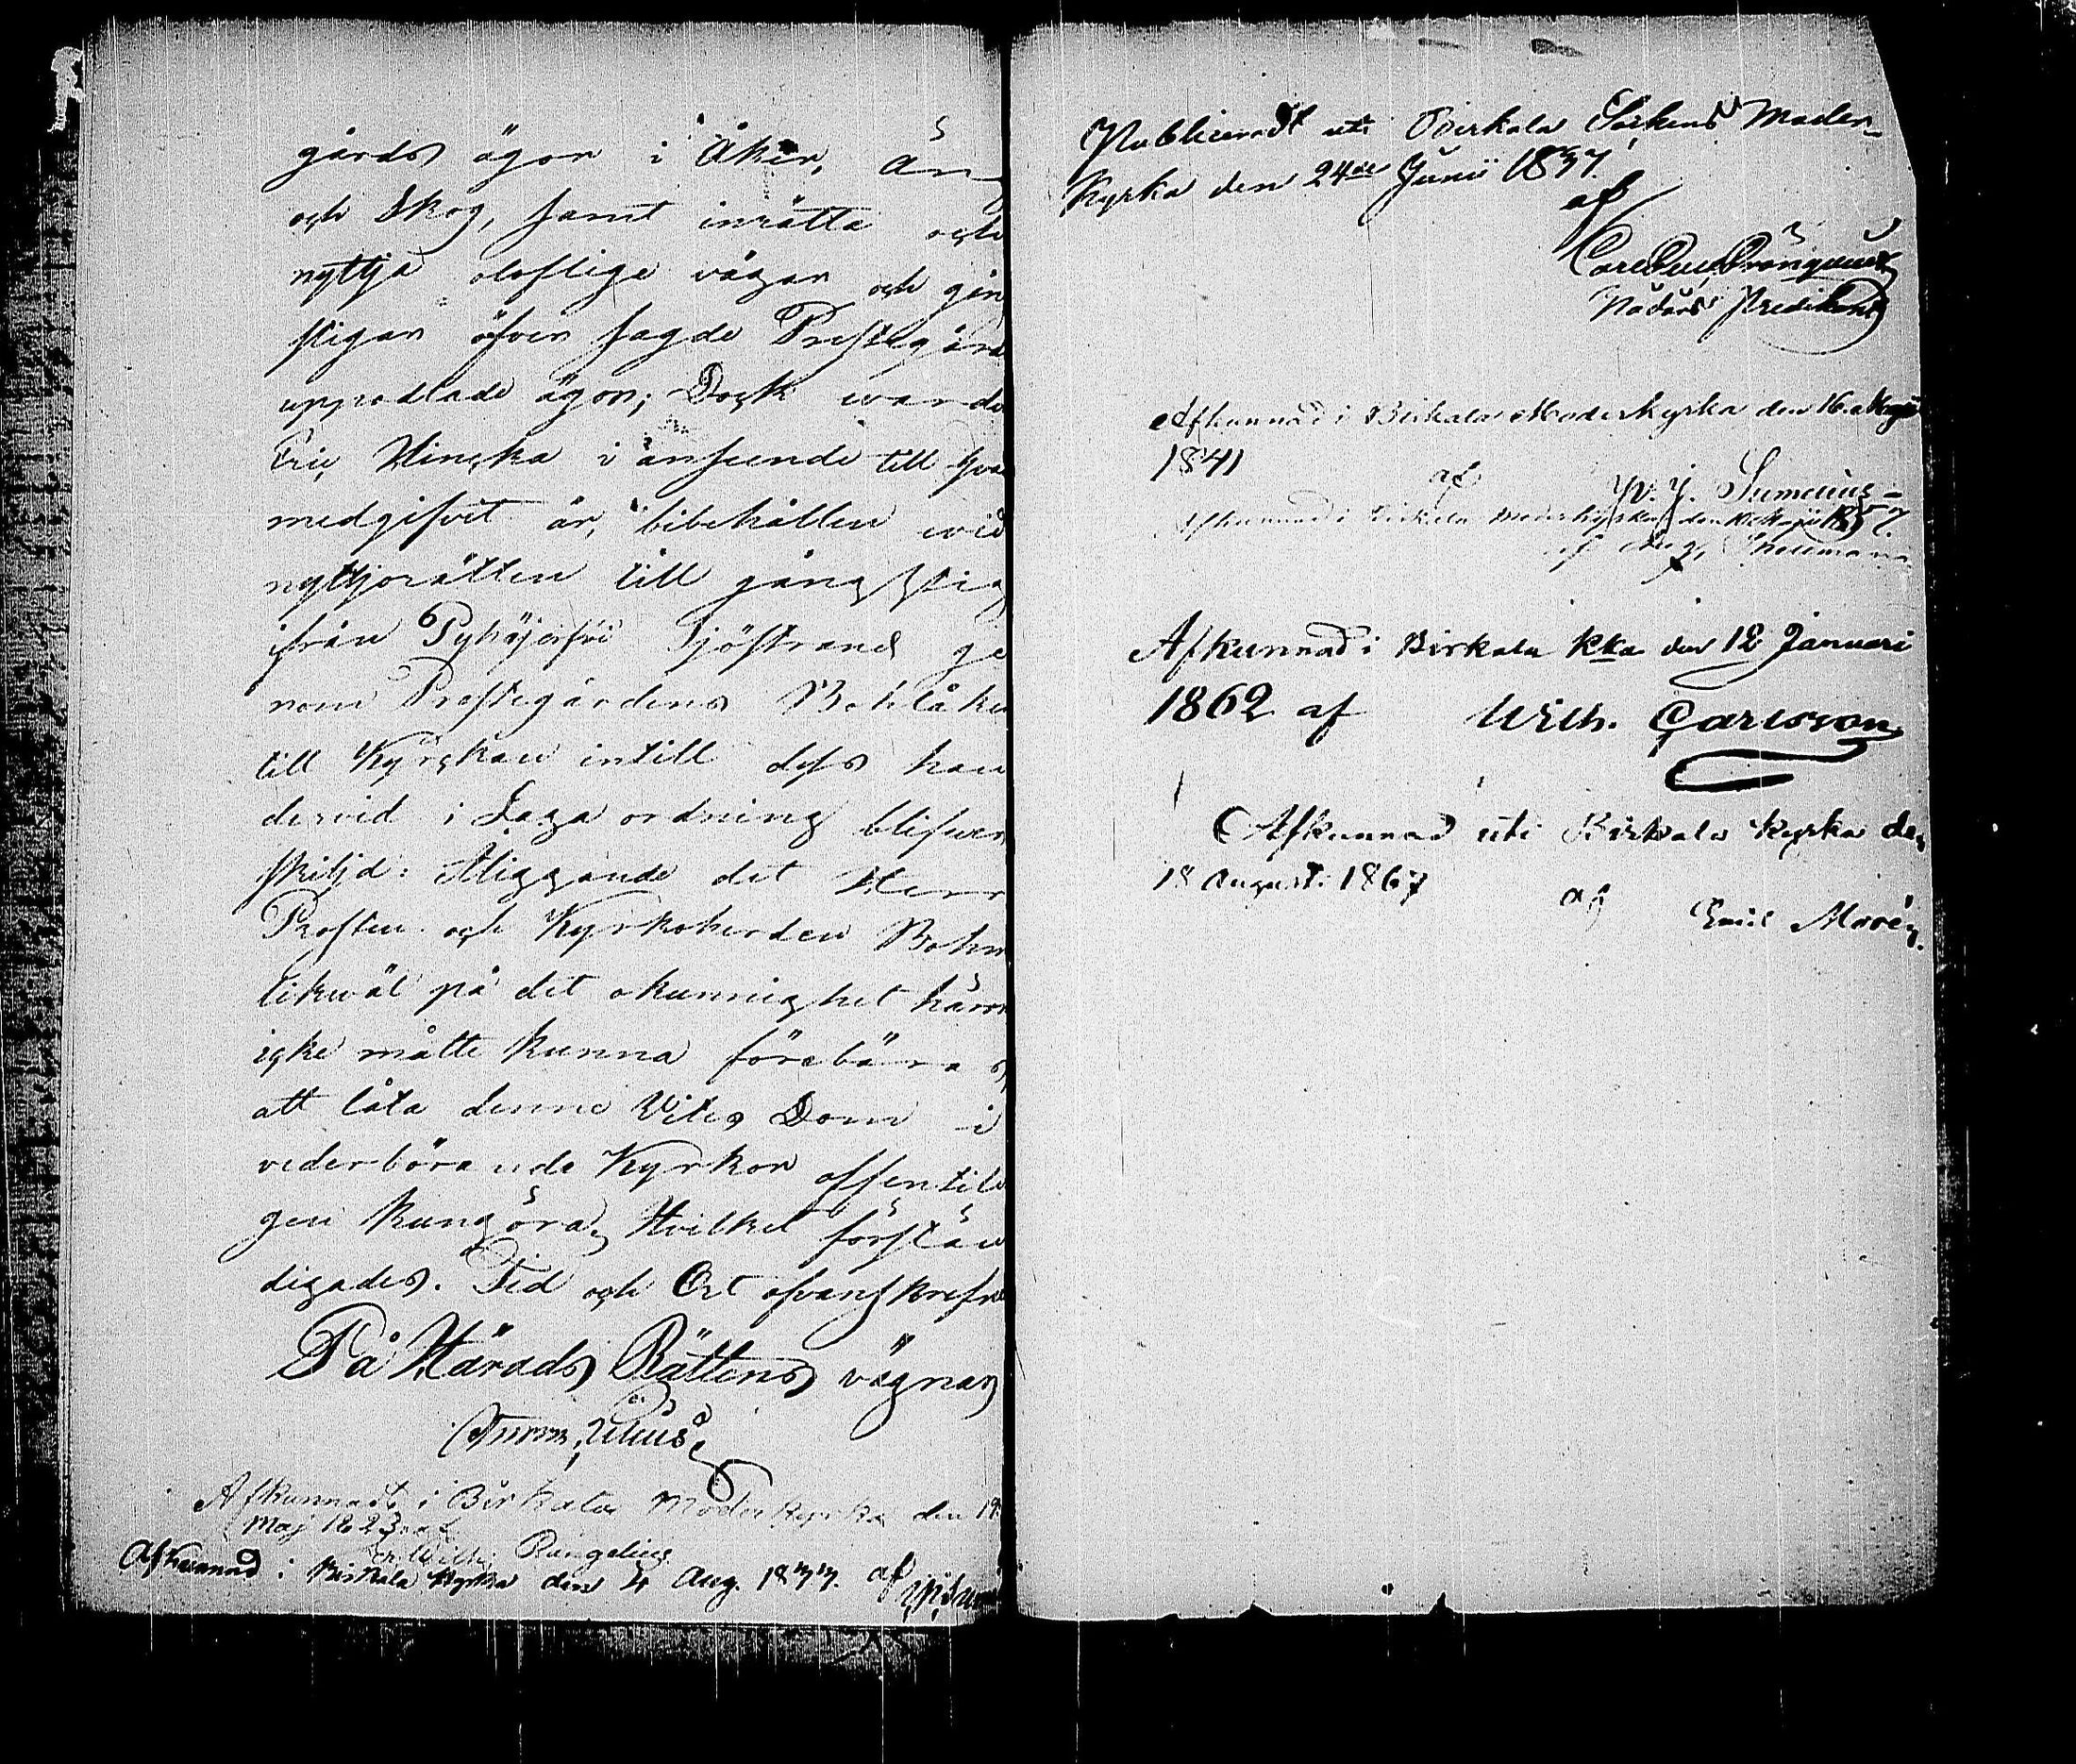 gårds ägor i Åker, än
och Skog, samt inrätta och
nyttja oloflige vägar och gin
stigar öfver sagde Prestegårds
uppodlade ägor; Dock warde
Eric Hincka i anseende till hvad
medgifvit är, bibehållen wid
nyttjorätten till gångstig
från Pyhäjerfvi Sjöstrand ge
nom Prestegårdens Bohlåker
till Kyrckan intill dess han
dervid i Laga ordning blifver
skiljd: Åliggande det Herr
Prosten och Kyrkoherden Bohm
likwäl på det okunnighet härom
icke måtte kunna förebäras
att låta denne Vites Dom i
vederbörande Kyrkor offentlı
gen kungöra, Hvilket förstän
digades. Tid och Ort ofvanskrefne
På Härads Rättens vägnar
Afkunnadt i Birkala Moder kyrka den 19
Maj 1823 af
Rungelius
Afkunnad i Birkala Kyrka den 4 Aug. 1877. af
Publiceradt uti Birkala Sockens Moder-
Kyrka den 24de Junii 1837.
af
Nådårs Predikant
Afkunnad i Birkala Moderkyrka den 16. Maji
1841 af
Afkunnad i Birkala Moderkyrka den
af
Afkunnad i Birkala kka den 12 Januari
1862 af Wilh. Carlsson
Afkunnad uti Birkala Kyrka den
18 Augusti 1867 af Emil Morén.